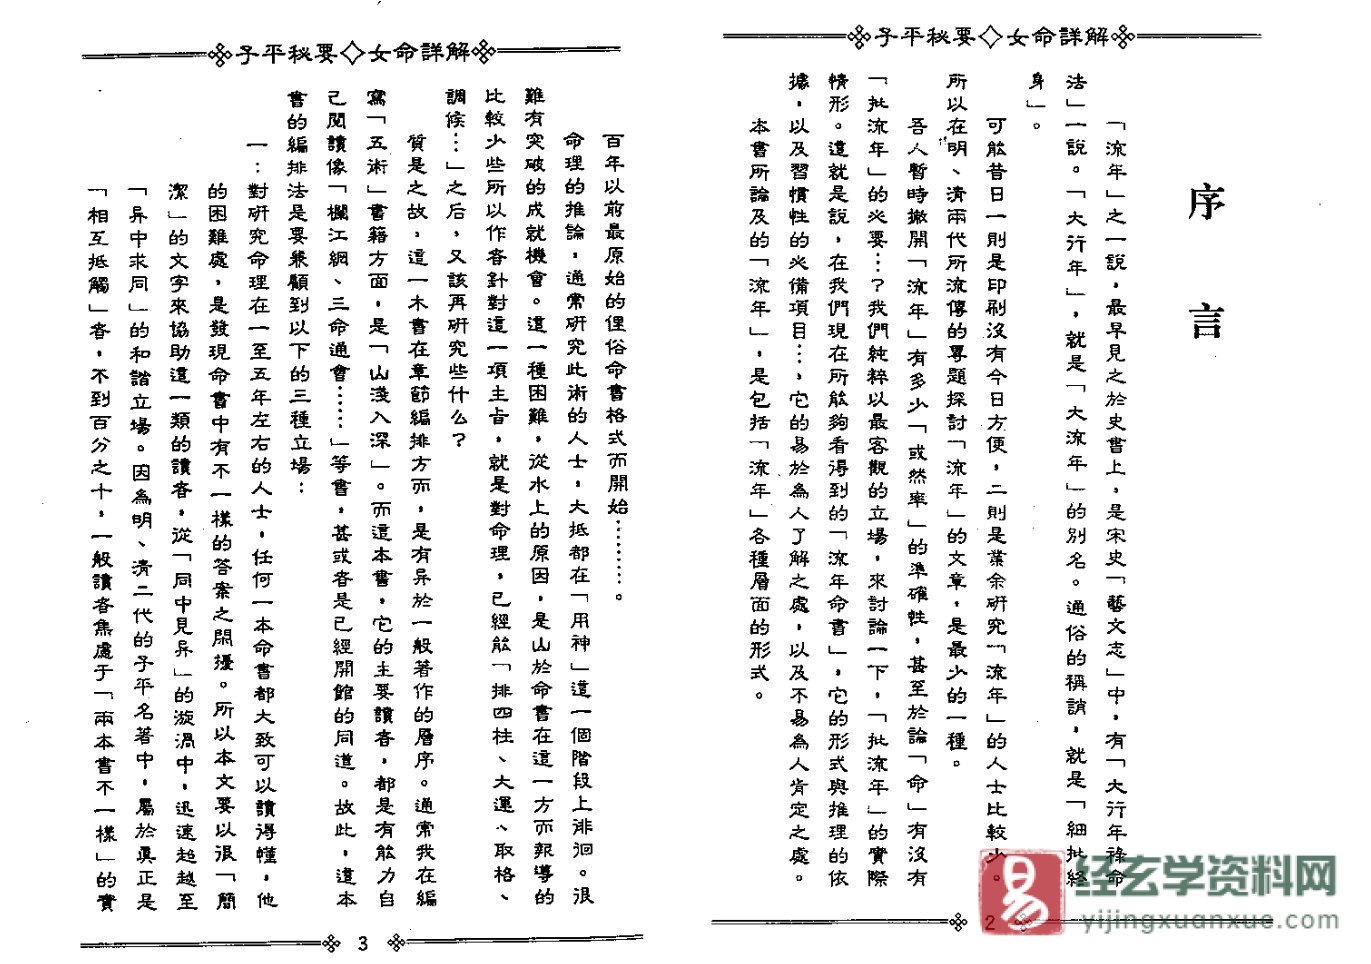 子平秘要◇女命詳解
序言
「流年」之一說，最早見之於史書上，是宋史「藝文志」中，有「大行年祿命
法」一說。「大行年」，就是「大流年」的別名。通俗的稱謂，就是「細批終
身」。
可能昔日一則是印刷沒有今日方便，二則是業余研究「流年」的人士比較少。
所以在明、清兩代所流傳的專題探討「流年」的文章，是最少的一種。
吾人暫時撇開「流年」有多少「或然率」的準確性，甚至於論「命」有沒有
「批流年」的必要…？我們純粹以最客觀的立場，來討論一下，「批流年」的實際
情形。這就是說，在我們現在所能夠看得到的「流年命書」，它的形式與推理的依
據，以及習慣性的必備項目…，它的易於為人了解之處，以及不易為人肯定之處。
本書所論及的「流年」，是包括「流年」各種層面的形式。
2
子平秘要◇女命詳解
百年以前最原始的俚俗命書格式而開始………。
命理的推論，通常研究此術的人士，大抵都在「用神」這一個階段上徘徊。很
難有突破的成就機會。這一種困難，從水上的原因，是山於命書在這一方而報導的
比較少些所以作者針對這一項主旨，就是對命理，已經能「排四柱、大運、取格、
調候…」之后，又該再研究些什么？
質是之故，這一木書在章節編排方而，是有异於一般著作的層序。通常我在編
寫「五術」書籍方面，是「山淺入深」。而這本書，它的主要讀者，都是有能力自
己閱讀像「欄江網、三命通會……」等書，甚或者是已經開館的同道。故此，這本
書的編排法是要兼顧到以下的三種立場：
一：對研究命理在一至五年左右的人士，任何一本命書都大致可以讀得懂，他
的困難處，是發現命書中有不一樣的答案之閑擾。所以本文要以很「簡
潔」的文字來協助這一類的讀者，從「同中見异」的漩渦中，迅速超越至
「异中求同」的和諧立場。因為明、清二代的子平名著中，屬於真正是
「相互抵觸」者，不到百分之十，一般讀者焦慮于「兩本書不一樣」的實
3
易
经玄学资料网
yijingxuanxue.com